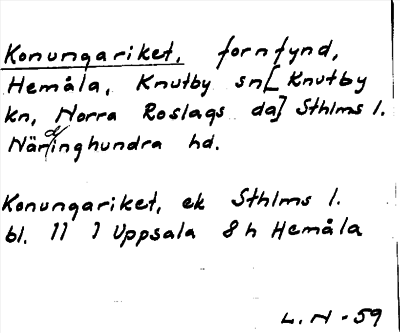 Konungariket, fornfynd,
Hemåla, Knutby sn[Knutby
kn, Norra Roslags da] Sthlms l.
Närdinghundra hd.
Konungariket, ek Sthlms l.
bl. 11 I Uppsala 8h Hemåla
L. N - 59